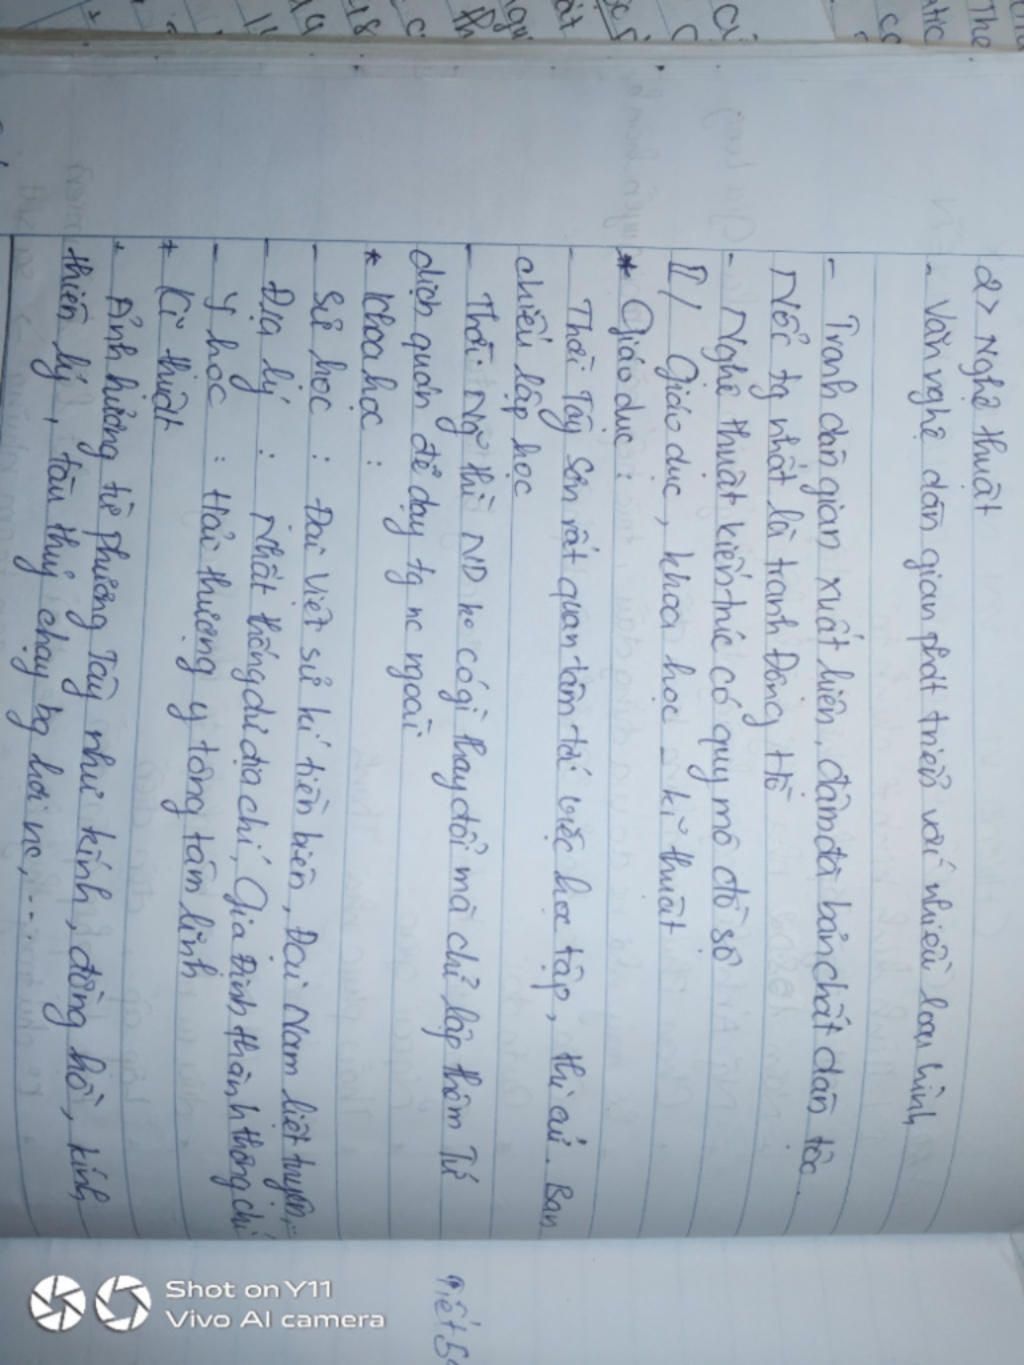 2> Nghệ thuật
- Văn nghệ dân gian phát triển với nhiều loại hình
- Tranh dân gian xuất hiện, đậm đà bản chất dân tộc.
Nổi tg nhất là tranh Đông Hồ
- Nghệ thuật kiến trúc có quy mô đồ sộ
II/ Giáo dục, khoa học - kĩ thuật
* Giáo dục:
- Thời Tây Sơn rất quan tâm tới việc học tập, thi cử. Ban
chiếu lập học
- Thời Ng thì ND ko có gì thay đổi mà chỉ lập thêm Tứ
dịch quán để dạy tg nc ngoài
* Khoa học:
- Sử học: Đại Việt sử kí tiền biên, Đại Nam liệt truyện,..
- Địa lý: Nhất thống dư địa chí, Gia Định thành thông chí
- Y học: Hải thượng y tông tâm lĩnh
* Kĩ thuật
+ Ảnh hưởng từ phương Tây như kính, đồng hồ, kính
thiên lý, tàu thuỷ chạy bg hơi nc,...
Tiết 5
Shot on Y11
Vivo AI camera